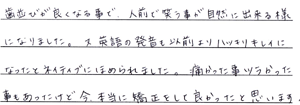 歯並びが良くなる事で、人前で笑う事が自然に出来る様
になりました。又英語の発音も以前よりハッキリキレイに
なったとネイティブにほめられました。痛かった事、つらかった
事もあったけど今、本当に矯正をして良かったと思います。